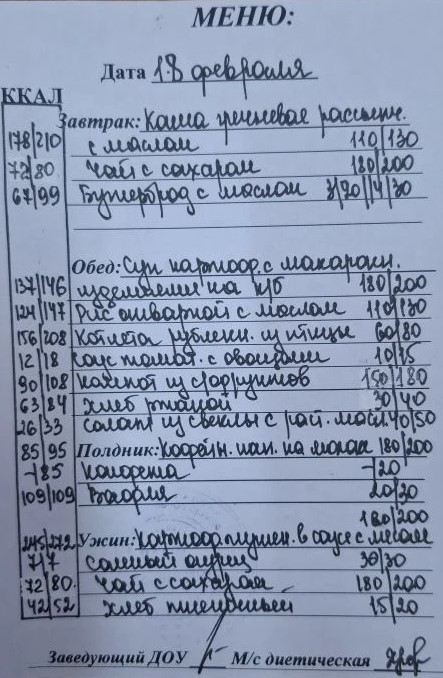 МЕНЮ:
Дата 18 февраля
ККАЛ
Завтрак: Каша гречневая рассыпч.
178/210 с маслом 110/130
72/80 Чай с сахаром 180/200
67/99 Бутерброд с маслом 3/20//4/30
Обед: Суп картоф. с макарон.
137/146 изделиями на к/б 180/200
124/147 Рис отварной с маслом 110/130
156/208 Котлета рублен. из птицы 60/80
12/18 соус томат. с овощами 10/15
90/108 Компот из с/фруктов 150/180
63/84 хлеб ржаной 30/40
26/33 салат из свеклы с раст. масл. 40/50
85/95 Полдник: Кофейн. нап. на молоке 180/200
-/85 Конфета -/20
109/109 Вафля 20/20
180/200
245/272 Ужин: Картоф. тушен. в соусе с мясом
7/7 соленый огурец 30/30
72/80 Чай с сахаром 180/200
42/52 хлеб пшеничный 15/20
Заведующий ДОУ М/с диетическая